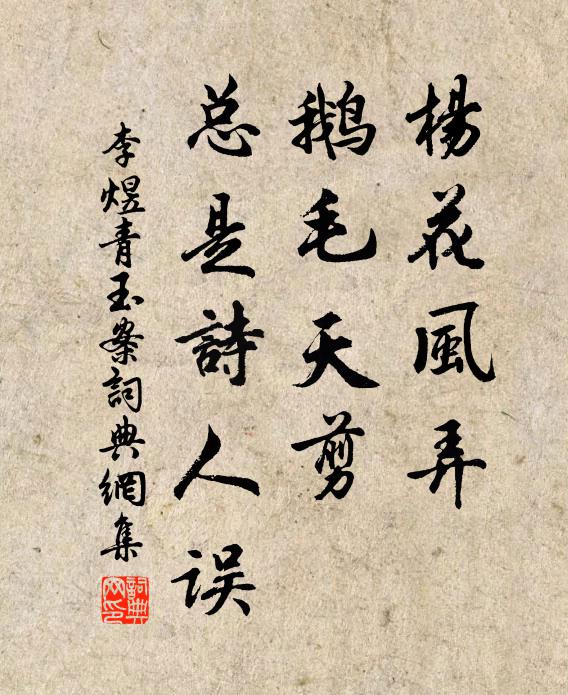 楊花風弄
鵝毛天剪
总是詩人误
李煜青玉案詞典網集
詞典网印